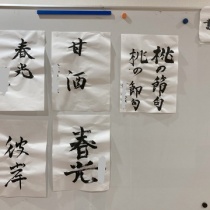 桃の節句
桃の節句
甘酒
春光
春光
彼岸